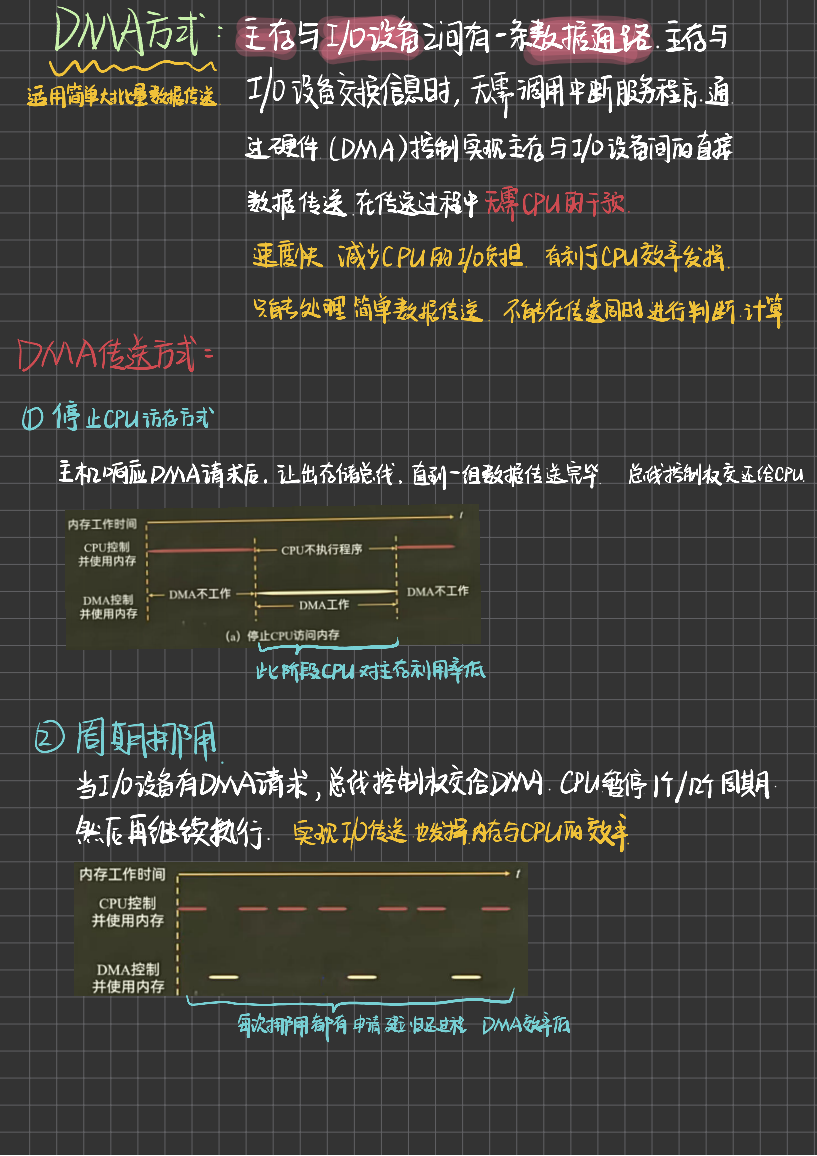 DMA方式：主存与I/O设备之间有一条数据通路.主存与
适用简单大批量数据传送
I/O设备交换信息时，无需调用中断服务程序.通
过硬件（DMA）控制实现主存与I/O设备间的直接
数据传送.在传送过程中无需CPU的干预.
速度快 减少CPU的I/O负担 有利于CPU效率发挥.
只能处理简单数据传送 不能在传送同时进行判断.计算
DMA传送方式：
① 停止CPU访存方式
主机响应DMA请求后，让出存储总线，直到一组数据传送完毕 总线控制权交还给CPU
内存工作时间 t
CPU控制
并使用内存
CPU不执行程序
DMA控制
并使用内存
DMA不工作 DMA工作 DMA不工作
（a）停止CPU访问内存
此阶段CPU对主存利用率低
② 周期挪用
当I/O设备有DMA请求，总线控制权交给DMA. CPU暂停1个/几个周期.
然后再继续执行. 实现I/O传送 也发挥内存与CPU的效率
内存工作时间 t
CPU控制
并使用内存
DMA控制
并使用内存
每次挪用都有申请 归还过程 DMA效率低